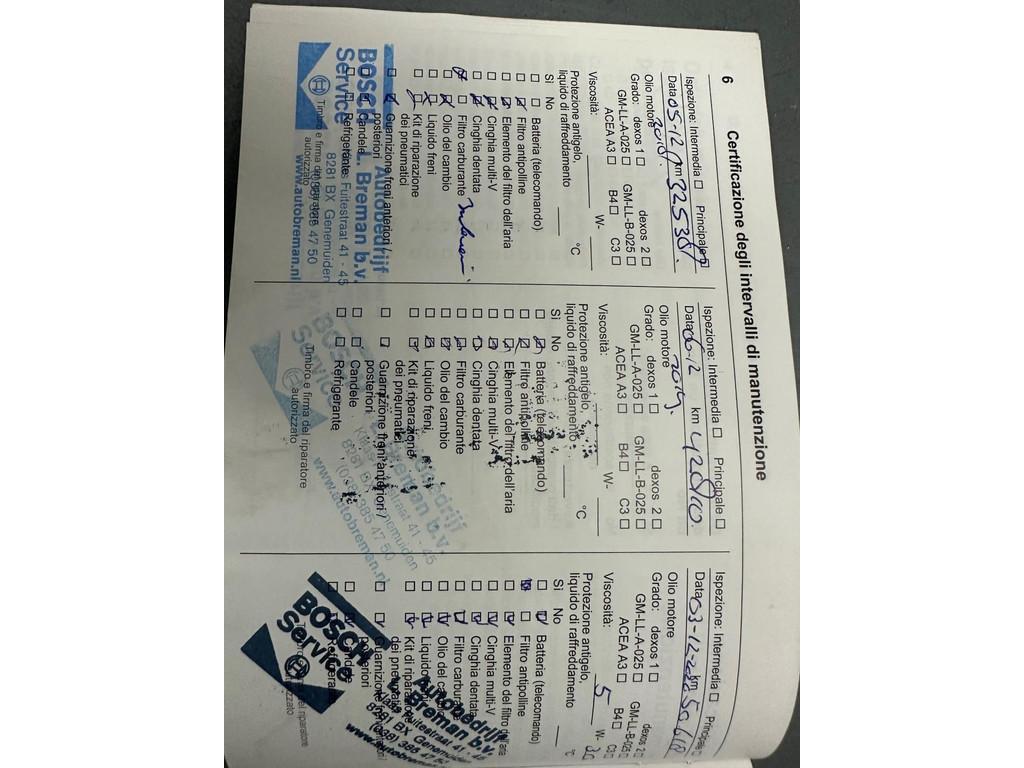 6
Certificazione degli intervalli di manutenzione
Ispezione: Intermedia □ Principale □
Data 05-12 2018. km 32538
Olio motore
Grado: dexos 1 □ dexos 2 □
GM-LL-A-025 □ GM-LL-B-025 □
ACEA A3 □ B4 □ C3 □
Viscosità: W-
Protezione antigelo,
liquido di raffreddamento °C
Sì No
Batteria (telecomando)
Filtro antipolline
Elemento del filtro dell'aria
Cinghia multi-V
Cinghia dentata
Filtro carburante
Olio del cambio
Liquido freni
Kit di riparazione
dei pneumatici
Guarnizione freni anteriori /
posteriori
Candele
Refrigerante
Timbro e firma del riparatore
autorizzato
BOSCH
Service
Autobedrijf
L. Breman b.v.
Klaas Fuitestraat 41 - 45
8281 BX Genemuiden
(038) 385 47 50
www.autobreman.nl
Ispezione: Intermedia □ Principale □
Data 06-12 2019. km 42810.
Olio motore
Grado: dexos 1 □ dexos 2 □
GM-LL-A-025 □ GM-LL-B-025 □
ACEA A3 □ B4 □ C3 □
Viscosità: W-
Protezione antigelo,
liquido di raffreddamento °C
Sì No
Batteria (telecomando)
Filtro antipolline
Elemento del filtro dell'aria
Cinghia multi-V
Cinghia dentata
Filtro carburante
Olio del cambio
Liquido freni
Kit di riparazione
dei pneumatici
Guarnizione freni anteriori /
posteriori
Candele
Refrigerante
Timbro e firma del riparatore
autorizzato
BOSCH
Service
Breman b.v.
8281 BX Genemuiden
(038) 385 47 50
www.autobreman.nl
Ispezione: Intermedia □ Principale □
Data 03-12-2020 km
Olio motore
Grado: dexos 1 □ dexos 2 □
GM-LL-A-025 □ GM-LL-B-025 □
ACEA A3 □ B4 □ C3 □
Viscosità: 5 W- 30
Protezione antigelo,
liquido di raffreddamento °C
Sì No
Batteria (telecomando)
Filtro antipolline
Elemento del filtro dell'aria
Cinghia multi-V
Cinghia dentata
Filtro carburante
Olio del cambio
Liquido freni
Kit di riparazione
dei pneumatici
Guarnizione freni anteriori
posteriori
Candele
Refrigerante
BOSCH
Service
Autobedrijf
L. Breman b.v.
Klaas Fuitestraat 41 - 45
8281 BX Genemuiden
(038) 385 47 50
www.autobreman.nl